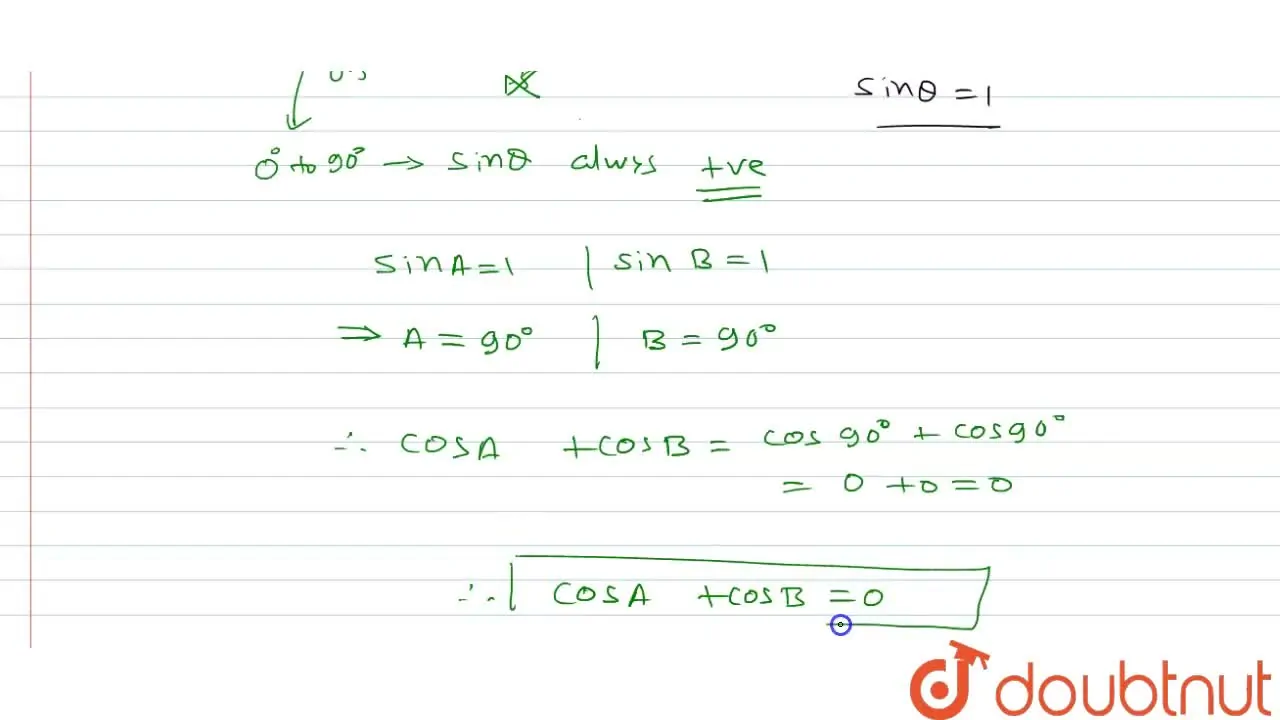 sinθ = 1
0° to 90° → sinθ alwys +ve
sin A = 1 | sin B = 1
⇒ A = 90° | B = 90°
∴ cos A + cos B = cos 90° + cos 90°
= 0 + 0 = 0
∴ cos A + cos B = 0
doubtnut